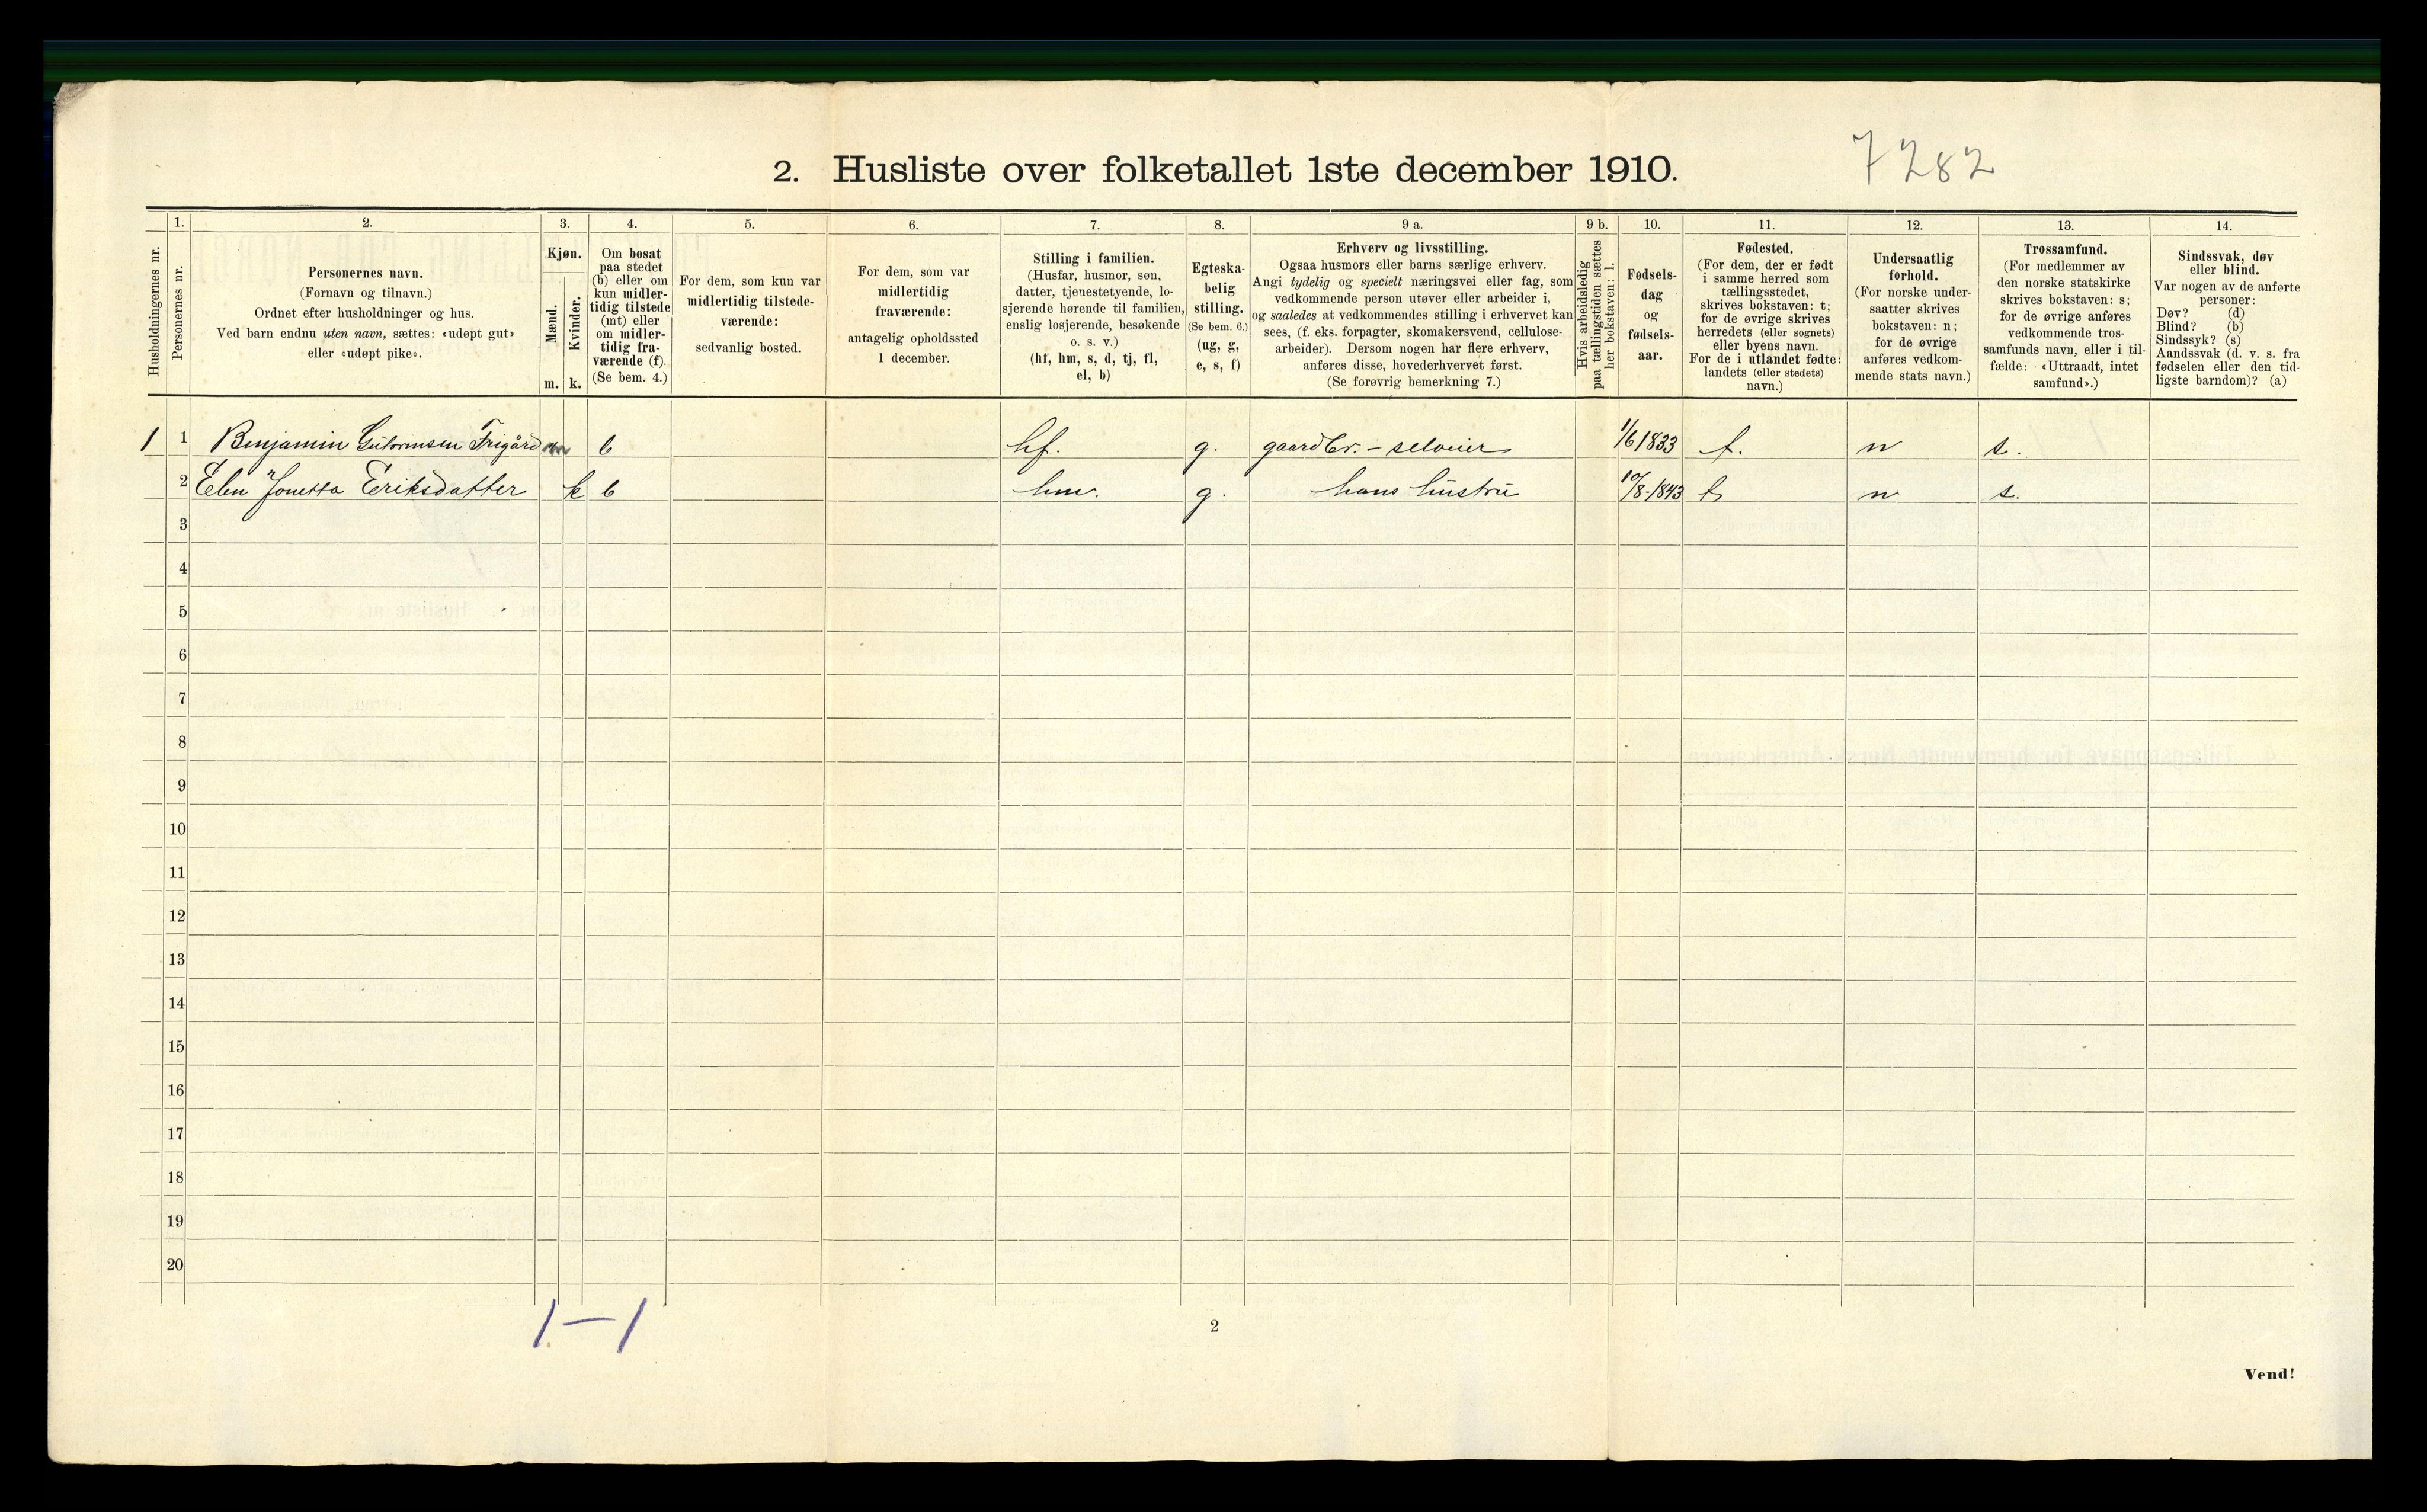 2. Husliste over folketallet 1ste december 1910.
7282
Husholdningernes nr.
1.
Personernes nr.
2.
Personernes navn.
(Fornavn og tilnavn.)
Ordnet efter husholdninger og hus.
Ved barn endnu uten navn, sættes: «udøpt gut»
eller «udøpt pike».
3.
Kjøn.
Mænd.
Kvinder.
m. k.
4.
Om bosat
paa stedet
(b) eller om
kun midler-
tidig tilstede
(mt) eller
om midler-
tidig fra-
værende (f).
(Se bem. 4.)
5.
For dem, som kun var
midlertidig tilstede-
værende:
sedvanlig bosted.
6.
For dem, som var
midlertidig
fraværende:
antagelig opholdssted
1 december.
7.
Stilling i familien.
(Husfar, husmor, søn,
datter, tjenestetyende, lo-
sjerende hørende til familien,
enslig losjerende, besøkende
o. s. v.)
(hf, hm, s, d, tj, fl,
el, b)
8.
Egteska-
belig
stilling.
(Se bem. 6.)
(ug, g,
e, s, f)
9 a.
Erhverv og livsstilling.
Ogsaa husmors eller barns særlige erhverv.
Angi tydelig og specielt næringsvei eller fag, som
vedkommende person utøver eller arbeider i,
og saaledes at vedkommendes stilling i erhvervet kan
sees, (f. eks. forpagter, skomakersvend, cellulose-
arbeider). Dersom nogen har flere erhverv,
anføres disse, hovederhvervet først.
(Se forøvrig bemerkning 7.)
9 b.
Hvis arbeidsledig
paa tællingstiden sættes
her bokstaven: l.
10.
Fødsels-
dag
og
fødsels-
aar.
11.
Fødested.
(For dem, der er født
i samme herred som
tællingsstedet,
skrives bokstaven: t;
for de øvrige skrives
herredets (eller sognets)
eller byens navn.
For de i utlandet fødte:
landets (eller stedets)
navn.)
12.
Undersaatlig
forhold.
(For norske under-
saatter skrives
bokstaven: n;
for de øvrige
anføres vedkom-
mende stats navn.)
13.
Trossamfund.
(For medlemmer av
den norske statskirke
skrives bokstaven: s;
for de øvrige anføres
vedkommende tros-
samfunds navn, eller i til-
fælde: «Uttraadt, intet
samfund».)
14.
Sindssvak, døv
eller blind.
Var nogen av de anførte
personer:
Døv? (d)
Blind? (b)
Sindssyk? (s)
Aandssvak (d. v. s. fra
fødselen eller den tid-
ligste barndom)? (a)
1 1 Benjamin Gutormsen Trigård m b hf. g. gaardbr. - selveier 1/6 1833 t. n s.
2 Elen Jonetta Eriksdatter k b hm. g. hans hustru 10/8-1843 t n s.
3
4
5
6
7
8
9
10
11
12
13
14
15
16
17
18
19
20
1 — 1
2
Vend!